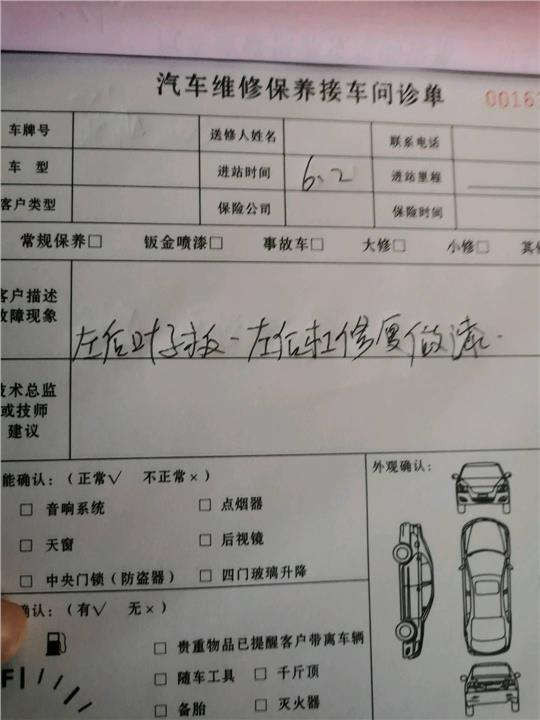 汽车维修保养接车问诊单 0016
车牌号 送修人姓名 联系电话
车 型 进站时间 6、2 进站里程
客户类型 保险公司 保险时间
常规保养□ 钣金喷漆□ 事故车□ 大修□ 小修□ 其
客户描述
故障现象
左后叶子板-左后杠修复做漆.
技术总监
或技师
建议
能确认：（正常√ 不正常×） 外观确认：
□ 音响系统 □ 点烟器
□ 天窗 □ 后视镜
□ 中央门锁（防盗器） □ 四门玻璃升降
确认：（有√ 无×）
□ 贵重物品已提醒客户带离车辆
F □ 随车工具 □ 千斤顶
□ 备胎 □ 灭火器